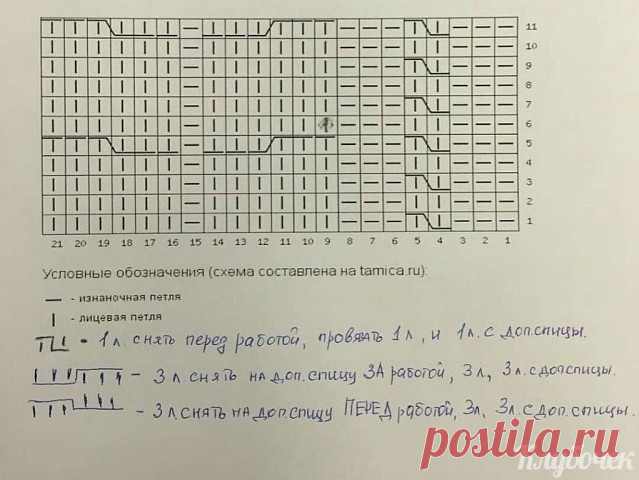 11
10
9
8
7
6
5
4
3
2
1
21 20 19 18 17 16 15 14 13 12 11 10 9 8 7 6 5 4 3 2 1
Условные обозначения (схема составлена на tamica.ru):
— - изнаночная петля
| - лицевая петля
- 1 л. снять перед работой, провязать 1 л, и 1 л. с доп. спицы.
- 3 л. снять на доп. спицу ЗА работой, 3 л, 3 л. с доп спицы.
- 3 л. снять на доп. спицу ПЕРЕД работой, 3 л, 3 л. с доп. спицы.
postila.ru
Клубочек